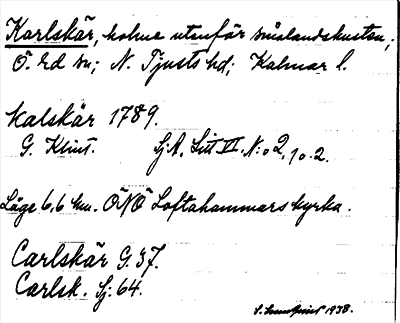 Karlskär, holme utanför smålandskusten,
Ö. Ed sn; N. Tjusts hd; Kalmar l.
Kalskär 1789.
G. Klint. Sj. A. Litt VI. N:o 2, 10.2.
Läge 6,6 km. ÖNÖ Loftahammars kyrka.
Carlskär G. 37.
Carlsk. Sj. 64.
1938.